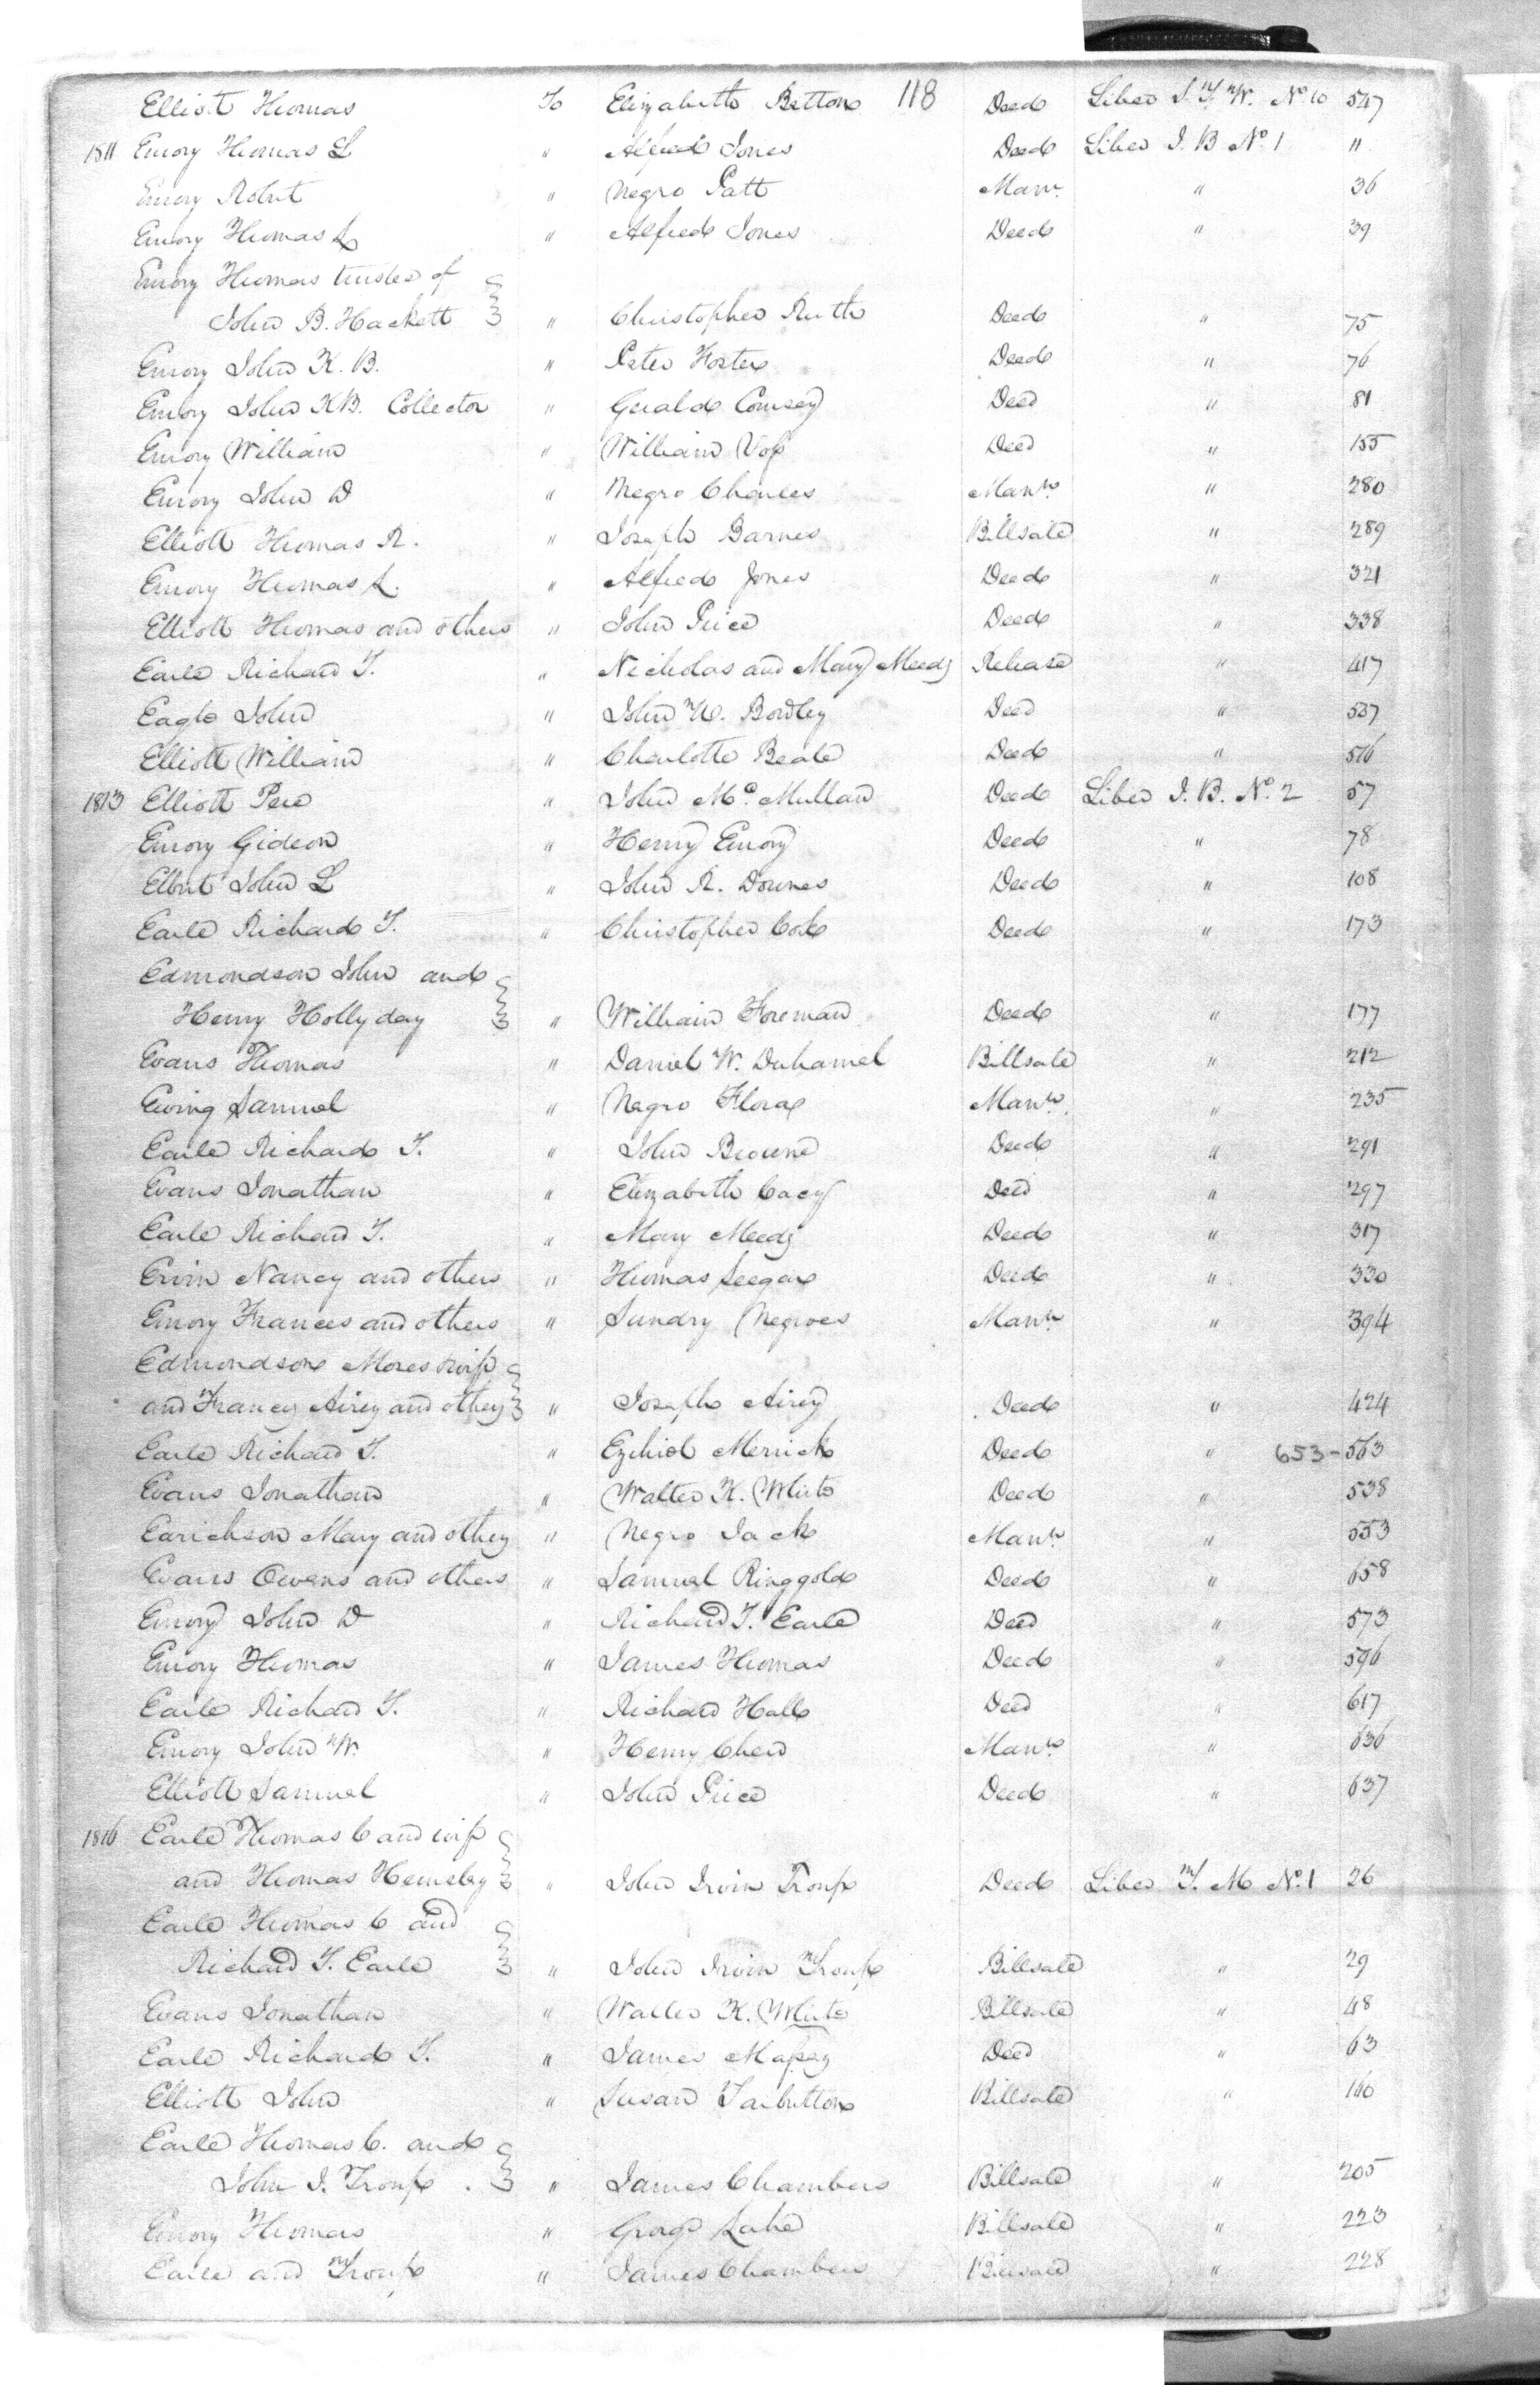 118
Elliott Thomas To Elizabeth Betton Deed Liber S.T.W. No 10 547
1811 Emory Thomas L " Alfred Jones Deed Liber J. B No. 1 "
Emory Robert " Negro Patt Manr. " 36
Emory Thomas L " Alfred Jones Deed " 39
Emory Thomas trustee of
John B. Hackett " Christopher Ruth Deed " 75
Emory John K. B. " Peter Foster Deed " 76
Emory John K.B. Collector " Gerald Coursey Deed " 81
Emory William " William Deed " 155
Emory John D " Negro Charles Manr. " 280
Elliott Thomas R. " Joseph Barnes Billsale " 289
Emory Thomas L. " Alfred Jones Deed " 321
Elliott Thomas and others " John Price Deed " 338
Earle Richard T. " Nicholas and Mary Meeds Release " 417
Eagle John " John W. Bordley Deed " 537
Elliott William " Charlotte Beale Deed " 516
1813 Elliott Pere " John Mc. Mullan Deed Liber J. B. No. 2 57
Emory Gideon " Henry Emory Deed " 78
Elbert John L " John R. Downes Deed " 108
Earle Richard T. " Christopher Cox Deed " 173
Edmondson John and
Henry Hollyday " William Foreman Deed " 177
Evans Thomas " Daniel W. Duhamel Billsale " 212
Ewing Samuel " Negro Flora Manr. " 235
Earle Richard T. " John Browne Deed " 291
Evans Jonathan " Elizabeth Cacy Deed " 297
Earle Richard T. " Mary Meeds Deed " 317
Ervin Nancy and others " Thomas Seegar Deed " 330
Emory Frances and others " Sundry Negroes Manr. " 394
Edmondson Moses & wife
and Frances Airey and others " Joseph Airey Deed " 424
Earle Richard T. " Ezekiel Merrick Deed " 653 - 563
Evans Jonathan " Walter K. White Deed " 538
Earickson Mary and others " Negro Jack Manr. " 553
Evans Owens and others " Samuel Ringgold Deed " 658
Emory John D " Richard T. Earle Deed " 573
Emory Thomas " James Thomas Deed " 596
Earle Richard T. " Richard Hall Deed " 617
Emory John W. " Henry Chew Manr. " 636
Elliott Samuel " John Price Deed " 637
1816 Earle Thomas C and wife
and Thomas Hemsley " John Irvin Troup Deed Liber T. M No. 1 26
Earle Thomas C and
Richard T. Earle " John Irvin Troup Billsale " 29
Evans Jonathan " Walter K. White Billsale " 48
Earle Richard T. " James Massey Deed " 63
Elliott John " Susan Tarbutton Billsale " 160
Earle Thomas C. and
John I. Troup. " James Chambers Billsale " 205
Emory Thomas " George Lake Billsale " 223
Earle and Troup " James Chambers Billsale " 228